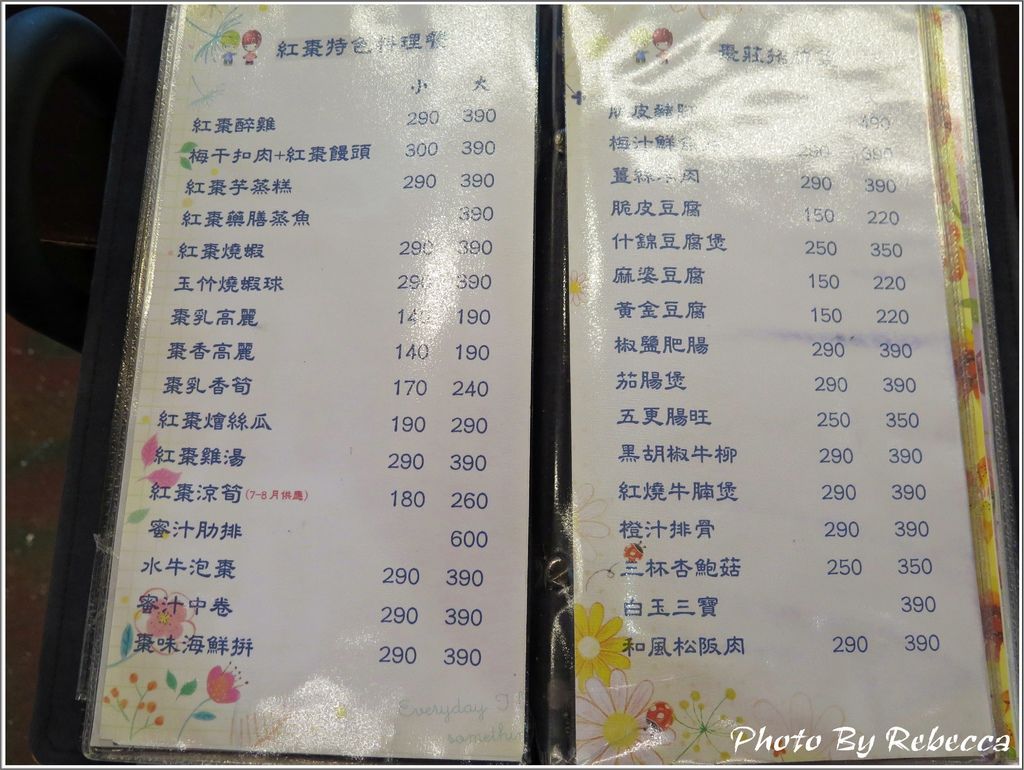 紅棗特色料理餐
小 大
紅棗醉雞 290 390
梅干扣肉+紅棗饅頭 300 390
紅棗芋蒸糕 290 390
紅棗藥膳蒸魚 390
紅棗燒蝦 290 390
玉竹燒蝦球 290 390
棗乳高麗 140 190
棗香高麗 140 190
棗乳香筍 170 240
紅棗燴絲瓜 190 290
紅棗雞湯 290 390
紅棗涼筍(7-8月供應) 180 260
蜜汁肋排 600
水牛泡棗 290 390
蜜汁中卷 290 390
棗味海鮮拼 290 390
Everyday I
somethin
棗莊
脆皮 490
梅汁鮮魚 290 390
薑絲 肉 290 390
脆皮豆腐 150 220
什錦豆腐煲 250 350
麻婆豆腐 150 220
黃金豆腐 150 220
椒鹽肥腸 290 390
茄腸煲 290 390
五更腸旺 250 350
黑胡椒牛柳 290 390
紅燒牛腩煲 290 390
橙汁排骨 290 390
三杯杏鮑菇 250 350
白玉三寶 390
和風松阪肉 290 390
Photo By Rebecca